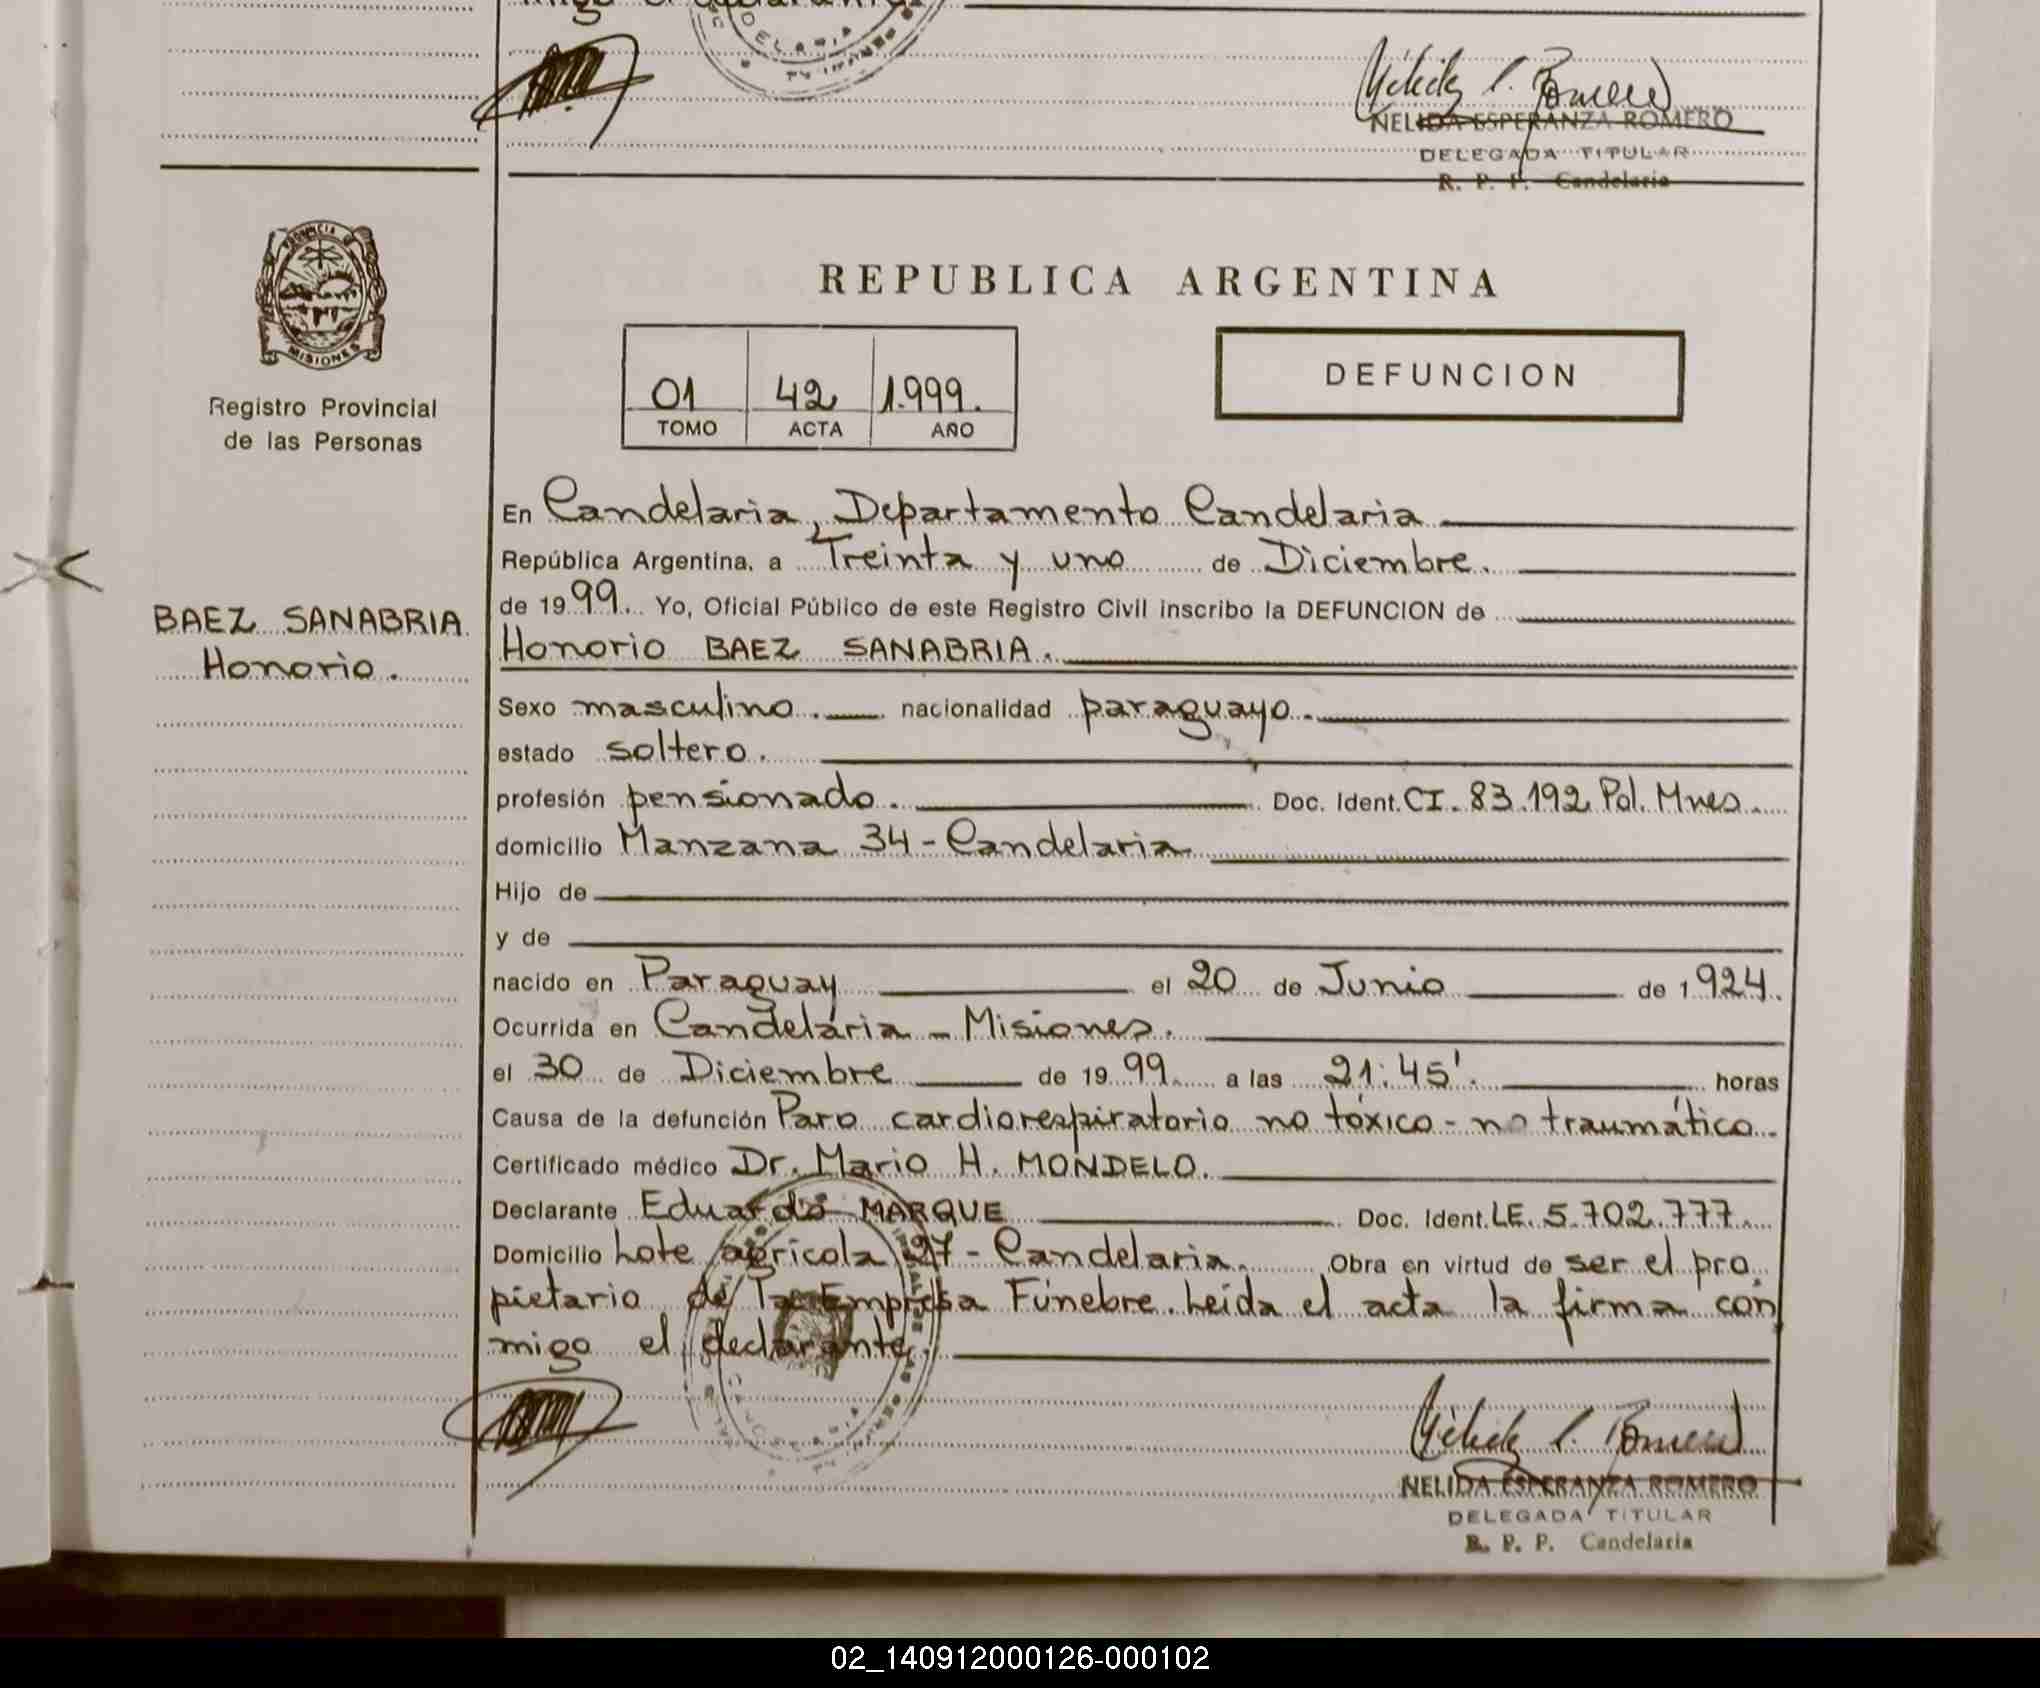 NELIDA ESPERANZA ROMERO
DELEGADA TITULAR
R. P. P. Candelaria
PROVINCIA DE
MISIONES
Registro Provincial
de las Personas
BAEZ SANABRIA
Honorio.
REPUBLICA ARGENTINA
01 42 1.999.
TOMO ACTA AÑO
DEFUNCION
En Candelaria, Departamento Candelaria
República Argentina, a Treinta y uno de Diciembre.
de 1999. Yo, Oficial Público de este Registro Civil inscribo la DEFUNCION de
Honorio BAEZ SANABRIA.
Sexo masculino. nacionalidad paraguayo.
estado soltero.
profesión pensionado. Doc. Ident. CI. 83.192 Pol. Mnes.
domicilio Manzana 34 - Candelaria
Hijo de
y de
nacido en Paraguay el 20 de Junio de 1924.
Ocurrida en Candelaria - Misiones.
el 30 de Diciembre de 1999. a las 21:45'. horas
Causa de la defunción Paro cardiorespiratorio no tóxico - no traumático.
Certificado médico Dr. Mario H. MONDELO.
Declarante Eduardo MARQUE Doc. Ident. LE. 5.702.777.
Domicilio Lote agricola 27 - Candelaria. Obra en virtud de ser el pro
pietario de la Empresa Fúnebre. Leida el acta la firma con
migo el declarante.
NELIDA ESPERANZA ROMERO
DELEGADA TITULAR
R. P. P. Candelaria
02_140912000126-000102